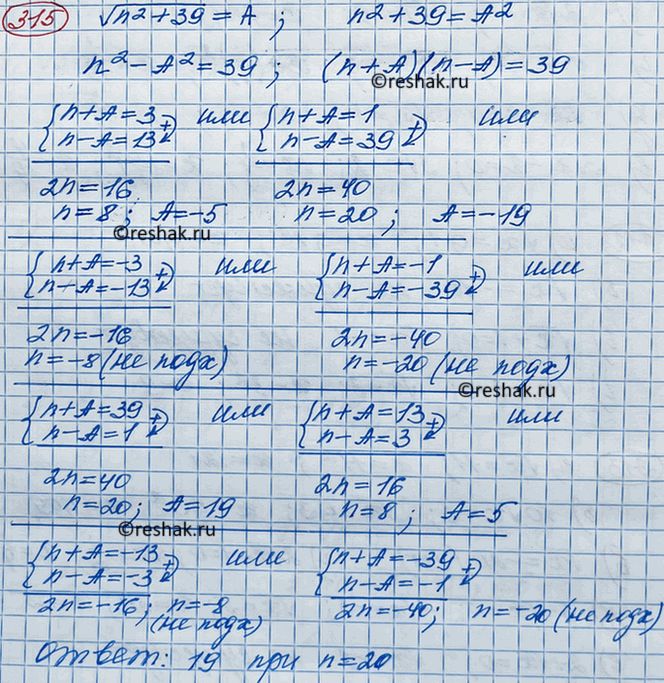 315 √n²+39 = A ; n²+39 = A²
n² − A² = 39 ; (n+A)(n−A) = 39
©reshak.ru
{n+A=3 или {n+A=1 или
n−A=13 + n−A=39 +
2n=16 2n=40
n=8 ; A=−5 n=20 ; A=−19
©reshak.ru
{n+A=−3 или {n+A=−1 или
n−A=−13 + n−A=−39 +
2n=−16 2n=−40
n=−8 (не подх) n=−20 (не подх)
©reshak.ru
{n+A=39 или {n+A=13 или
n−A=1 + n−A=3 +
2n=40 2n=16
n=20 ; A=19 n=8 ; A=5
©reshak.ru
{n+A=−13 или {n+A=−39
n−A=−3 + n−A=−1 +
2n=−16 ; n=−8 2n=−40 ; n=−20 (не подх)
(не подх)
Ответ: 19 при n=20